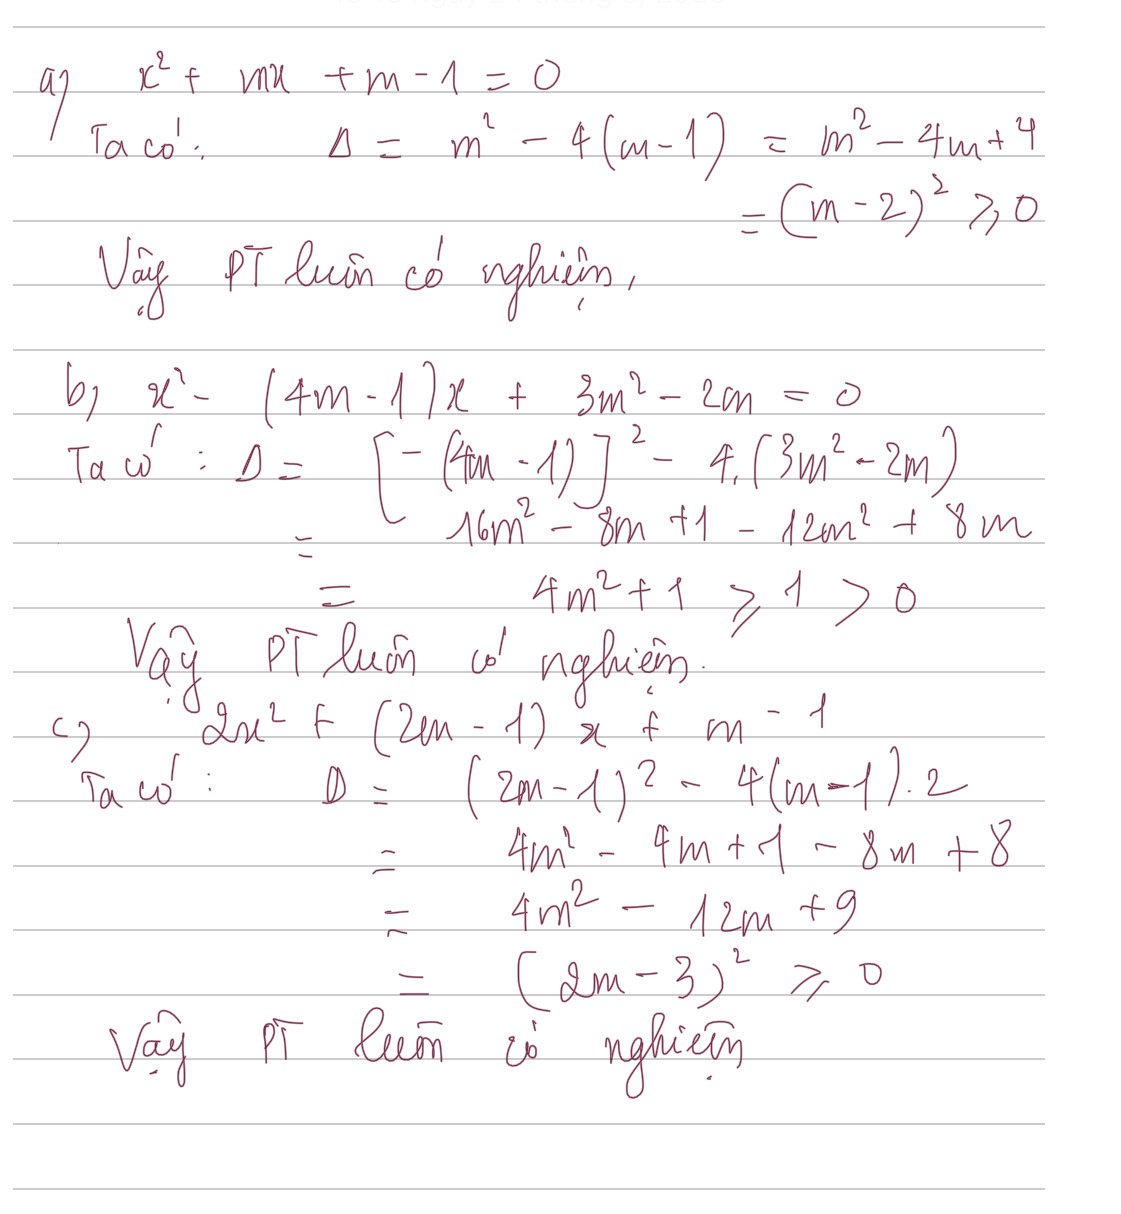 a) x² + mx + m - 1 = 0
Ta có: Δ = m² - 4(m-1) = m² - 4m + 4
= (m-2)² ≥ 0
Vậy PT luôn có nghiệm,
b) x² - (4m-1)x + 3m² - 2m = 0
Ta có: Δ = [-(4m-1)]² - 4.(3m² - 2m)
= 16m² - 8m + 1 - 12m² + 8m
= 4m² + 1 ≥ 1 > 0
Vậy PT luôn có nghiệm.
c) 2x² + (2m-1)x + m - 1
Ta có: Δ = (2m-1)² - 4(m-1).2
= 4m² - 4m + 1 - 8m + 8
= 4m² - 12m + 9
= (2m-3)² ≥ 0
Vậy PT luôn có nghiệm